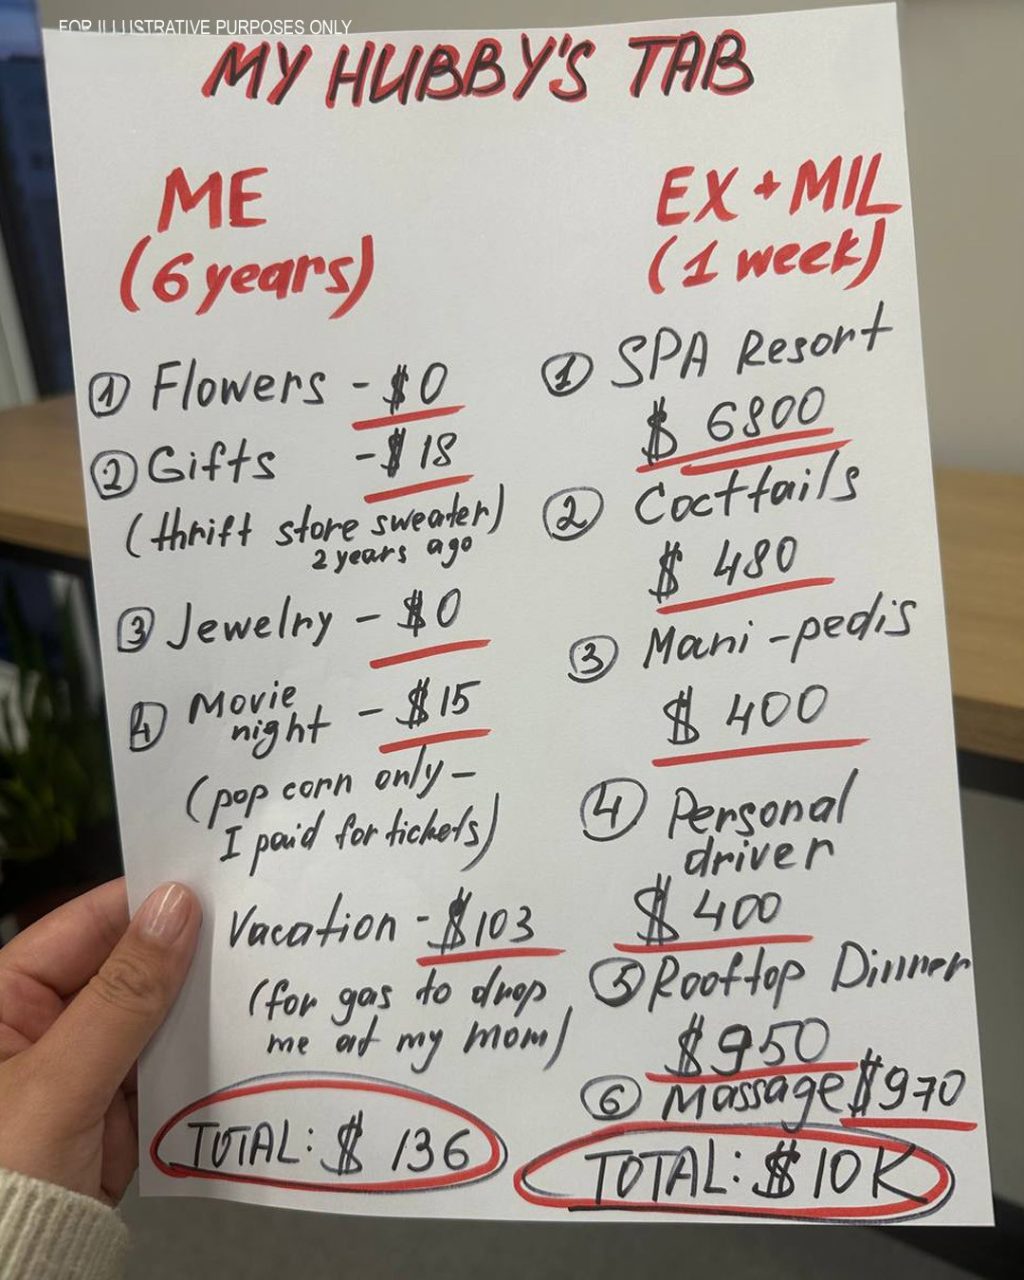 FOR ILLUSTRATIVE PURPOSES ONLY
MY HUBBY'S TAB
ME
(6 years)
① Flowers - $0
② Gifts - $18
(thrift store sweater)
2 years ago
③ Jewelry - $0
④ Movie
night - $15
(pop corn only -
I paid for tickets)
Vacation - $103
(for gas to drop
me at my mom)
TOTAL: $ 136
EX + MIL
(1 week)
① SPA Resort
$ 6800
② Cocttails
$ 480
③ Mani-pedis
$ 400
④ Personal
driver
$ 400
⑤ Rooftop Dinner
$950
⑥ Massage $970
TOTAL: $ 10K